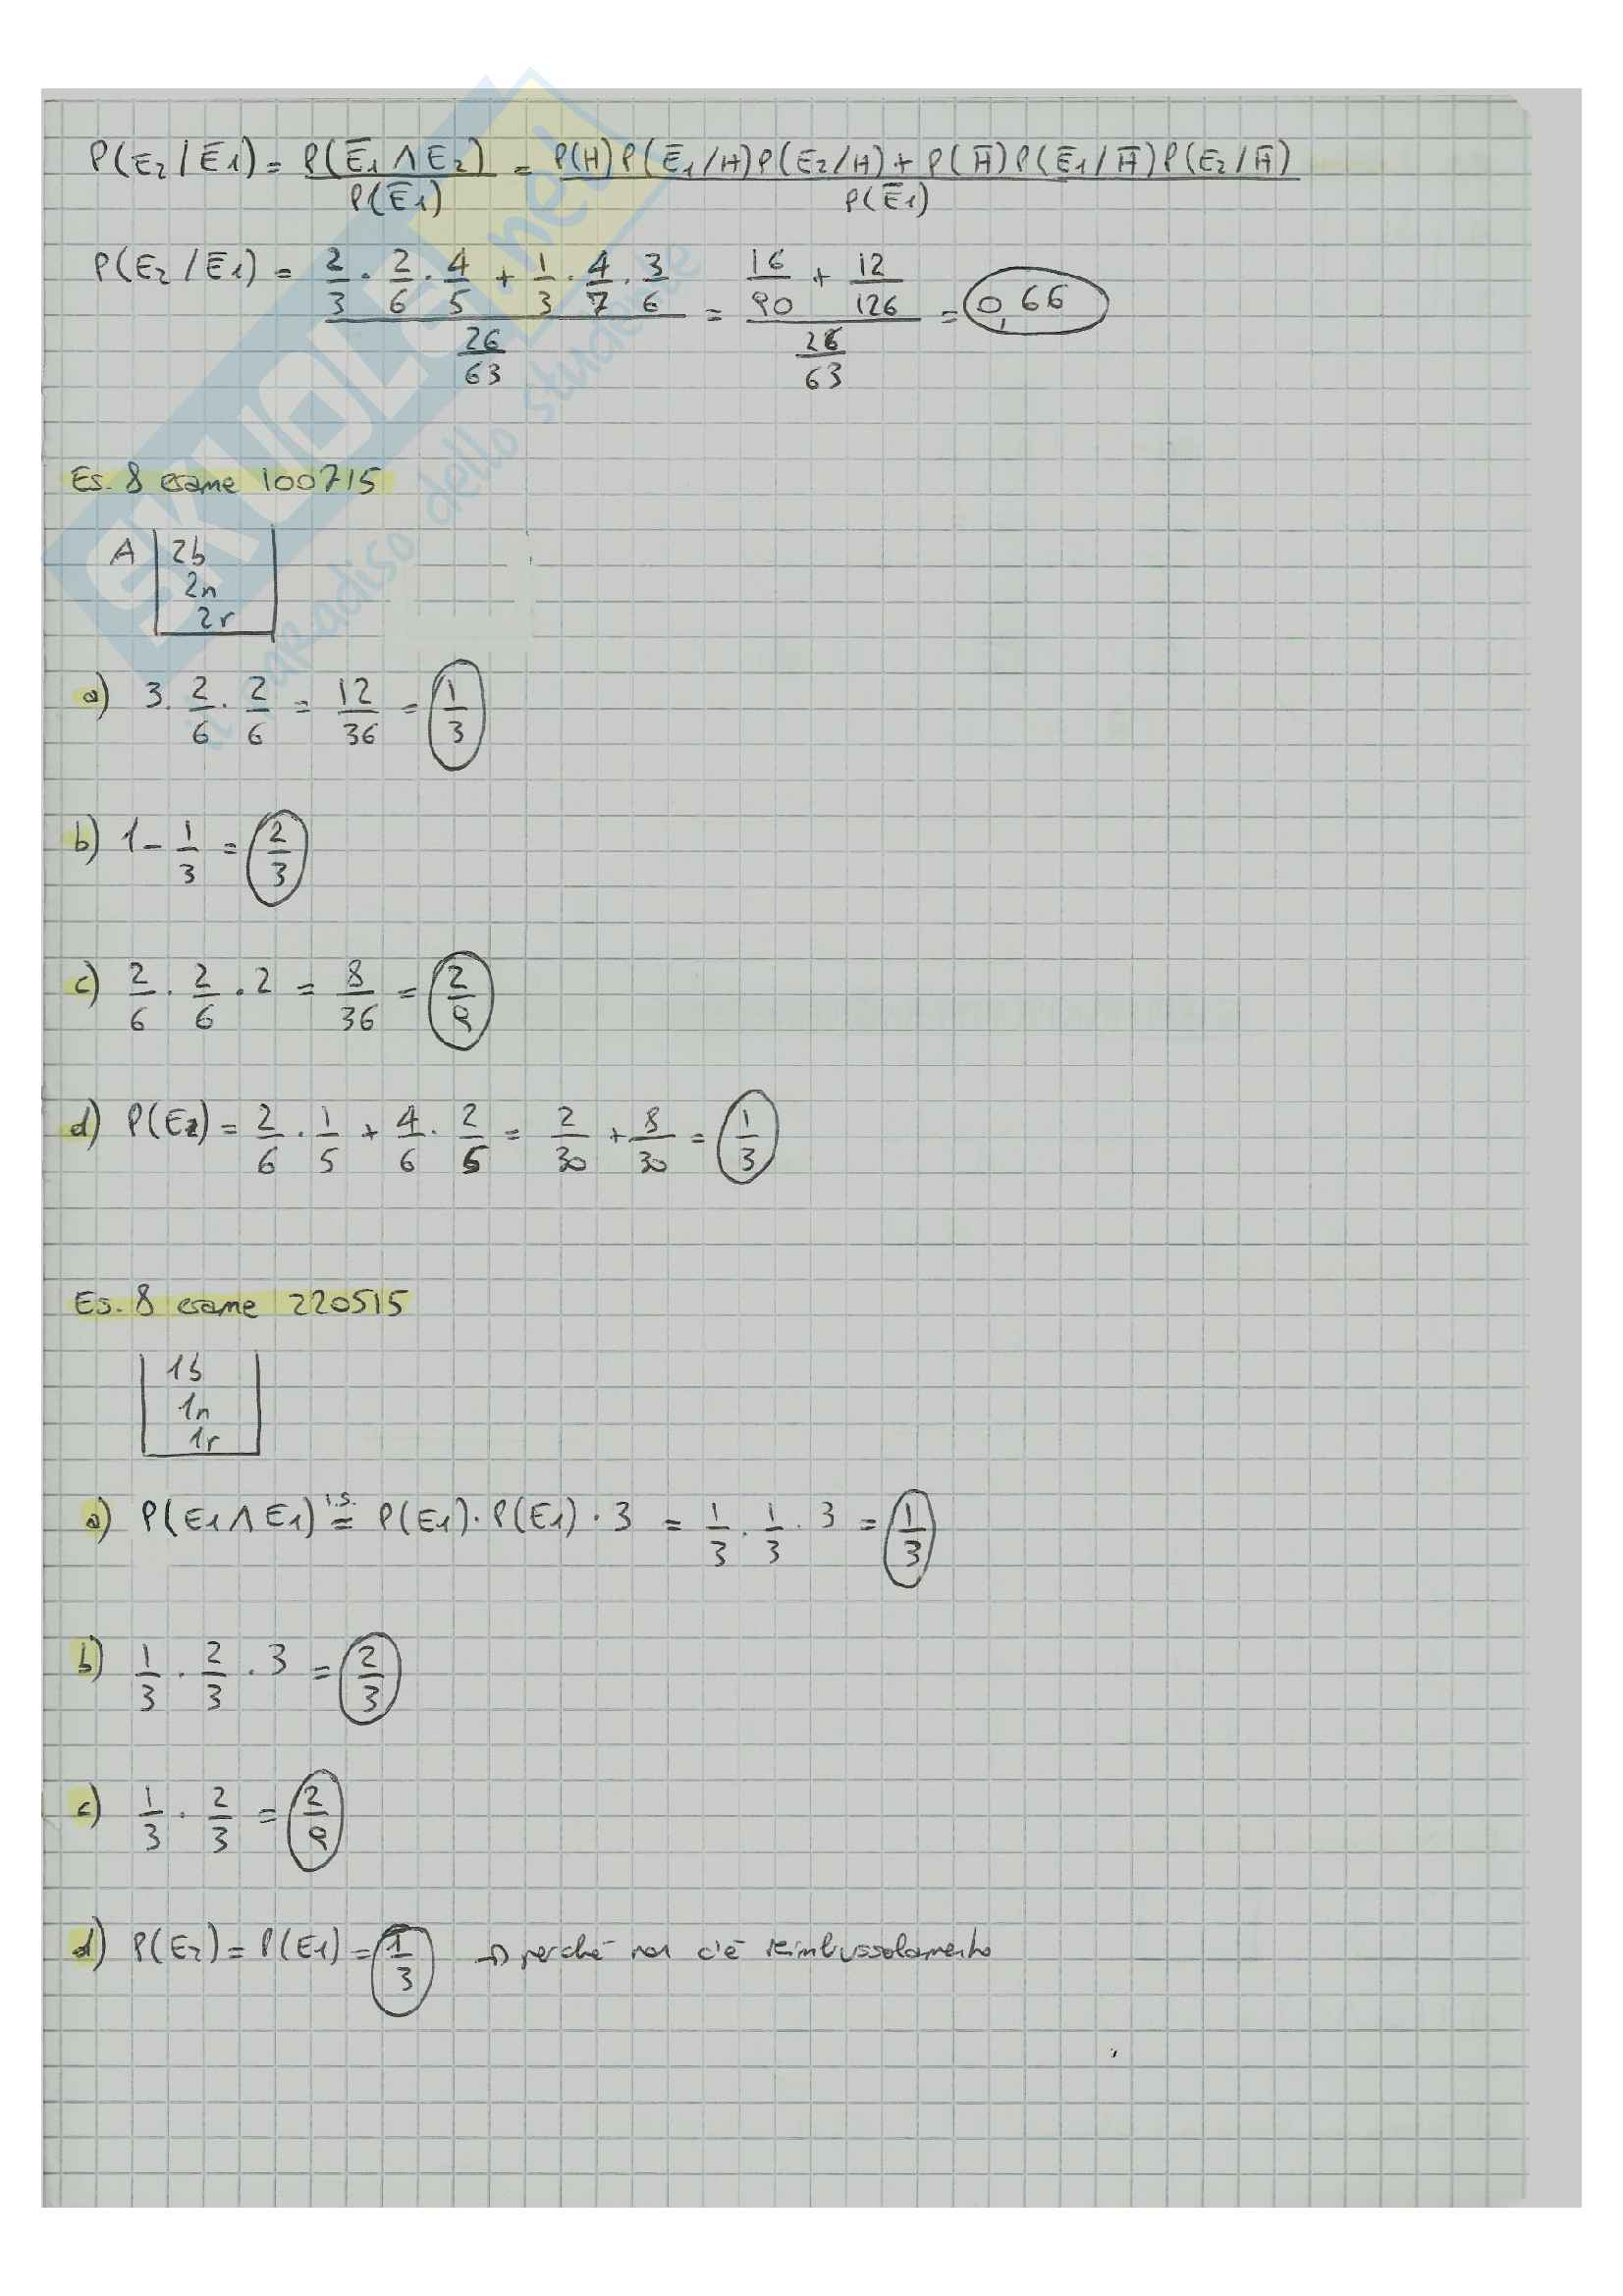 P(E2/Ē1) = P(Ē1 ∧ E2) / P(Ē1) = P(H)P(Ē1/H)P(E2/H) + P(H̄)P(Ē1/H̄)P(E2/H̄) / P(Ē1)
P(E2/Ē1) = (2/3 · 2/6 · 4/5 + 1/3 · 4/7 · 3/6) / (26/63) = (16/90 + 12/126) / (26/63) = 0,66
Es. 8 esame 100715
A 2b
2n
2r
a) 3 · 2/6 · 2/6 = 12/36 = 1/3
b) 1 - 1/3 = 2/3
c) 2/6 · 2/6 · 2 = 8/36 = 2/9
d) P(E2) = 2/6 · 1/5 + 4/6 · 2/5 = 2/30 + 8/30 = 1/3
Es. 8 esame 220515
1b
1n
1r
a) P(E1 ∧ E1) i.s. = P(E1) · P(E1) · 3 = 1/3 · 1/3 · 3 = 1/3
b) 1/3 · 2/3 · 3 = 2/3
c) 1/3 · 2/3 = 2/9
d) P(E2) = P(E1) = 1/3 → perché non c'è reimbussolamento
SKUOLA.net
il paradiso dello studente